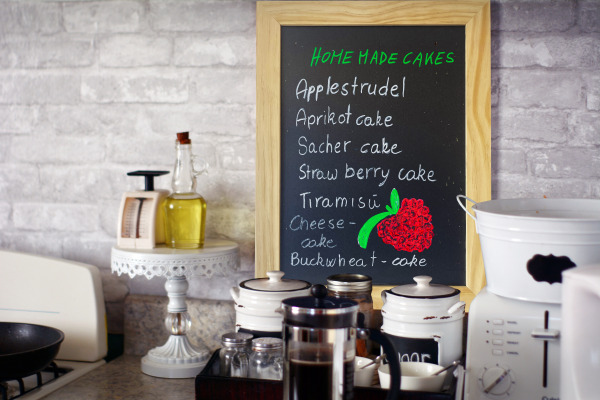 HOME MADE CAKES
Applestrudel
Aprikot cake
Sacher cake
Strawberry cake
Tiramisú
Cheese-
cake
Buckwheat-cake